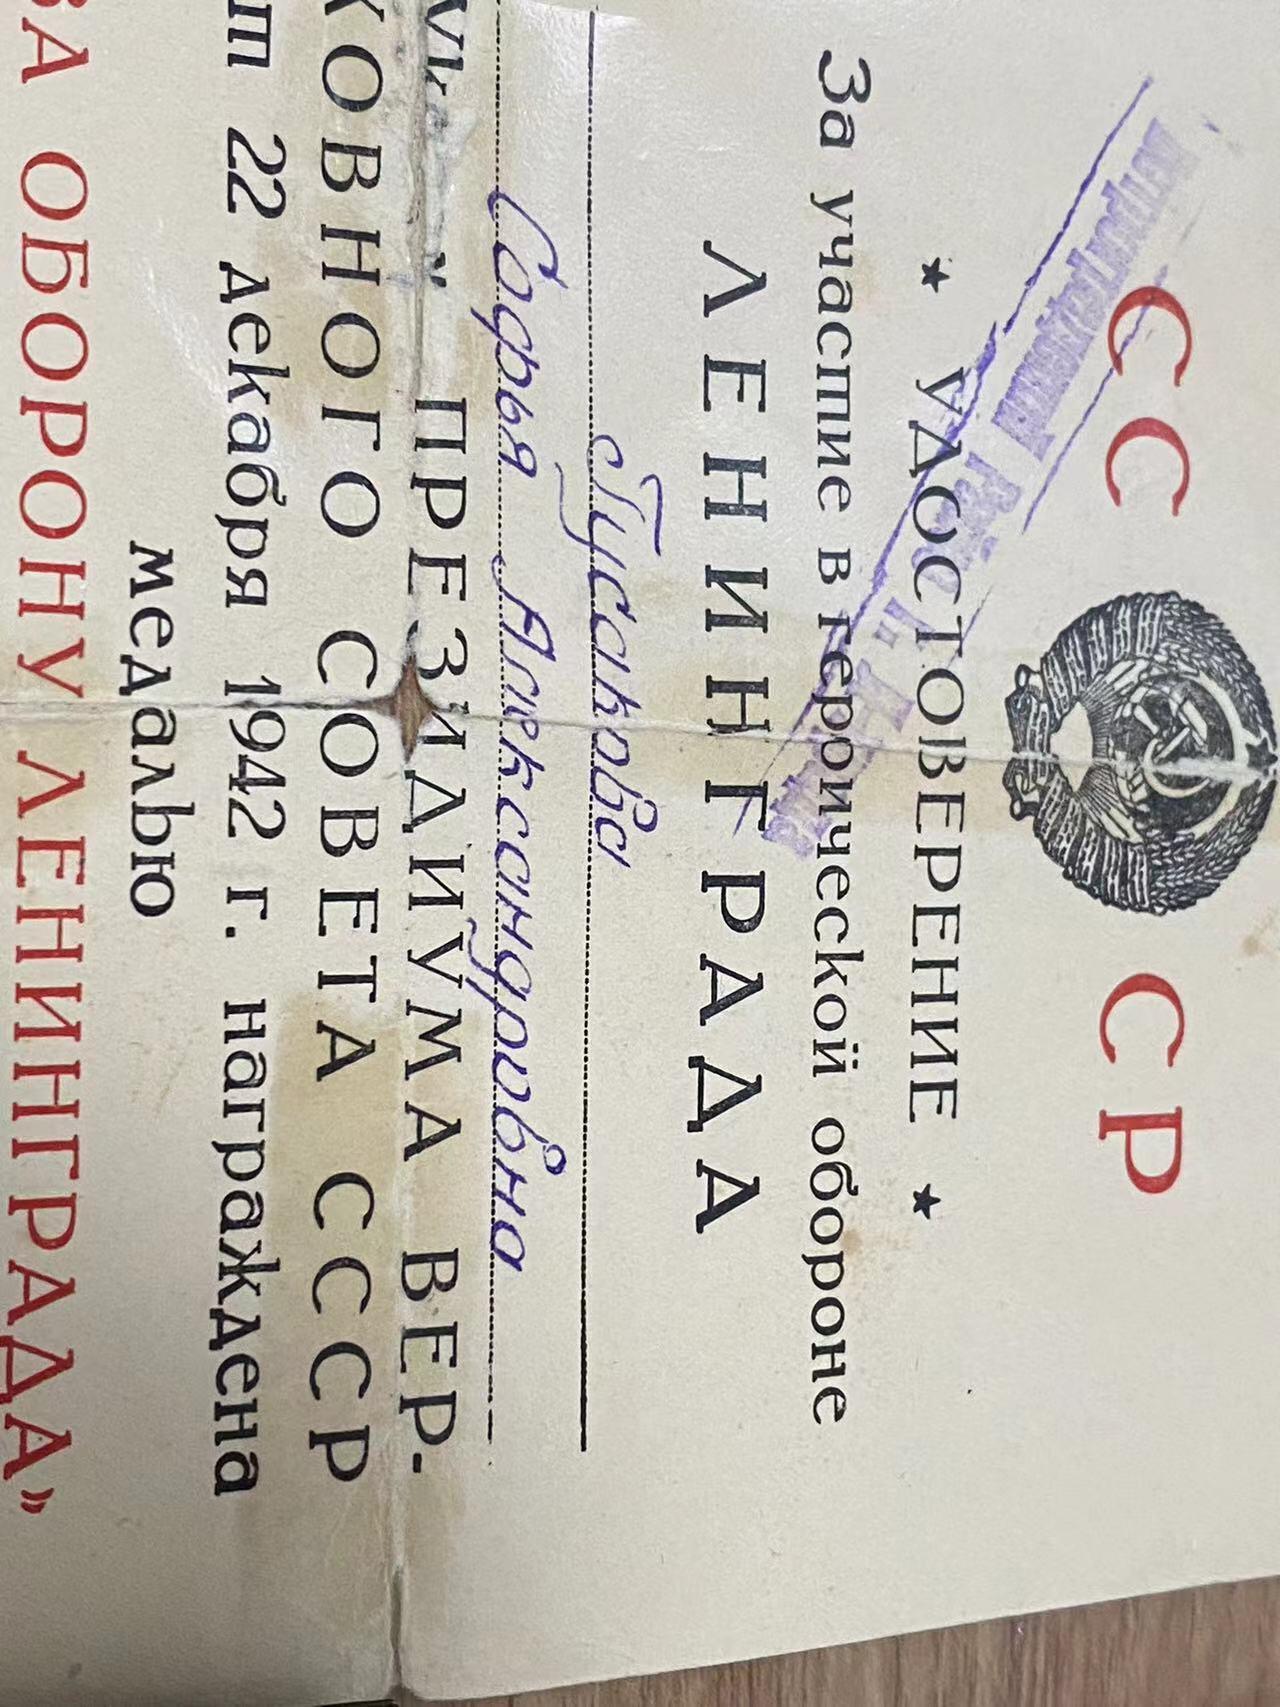 СССР
★ УДОСТОВЕРЕНИЕ ★
За участие в героической обороне
ЛЕНИНГРАДА
Гусакова
Софья Александровна
ПРЕЗИДИУМА ВЕР-
ХОВНОГО СОВЕТА СССР
от 22 декабря 1942 г. награждена
медалью
ЗА ОБОРОНУ ЛЕНИНГРАДА»